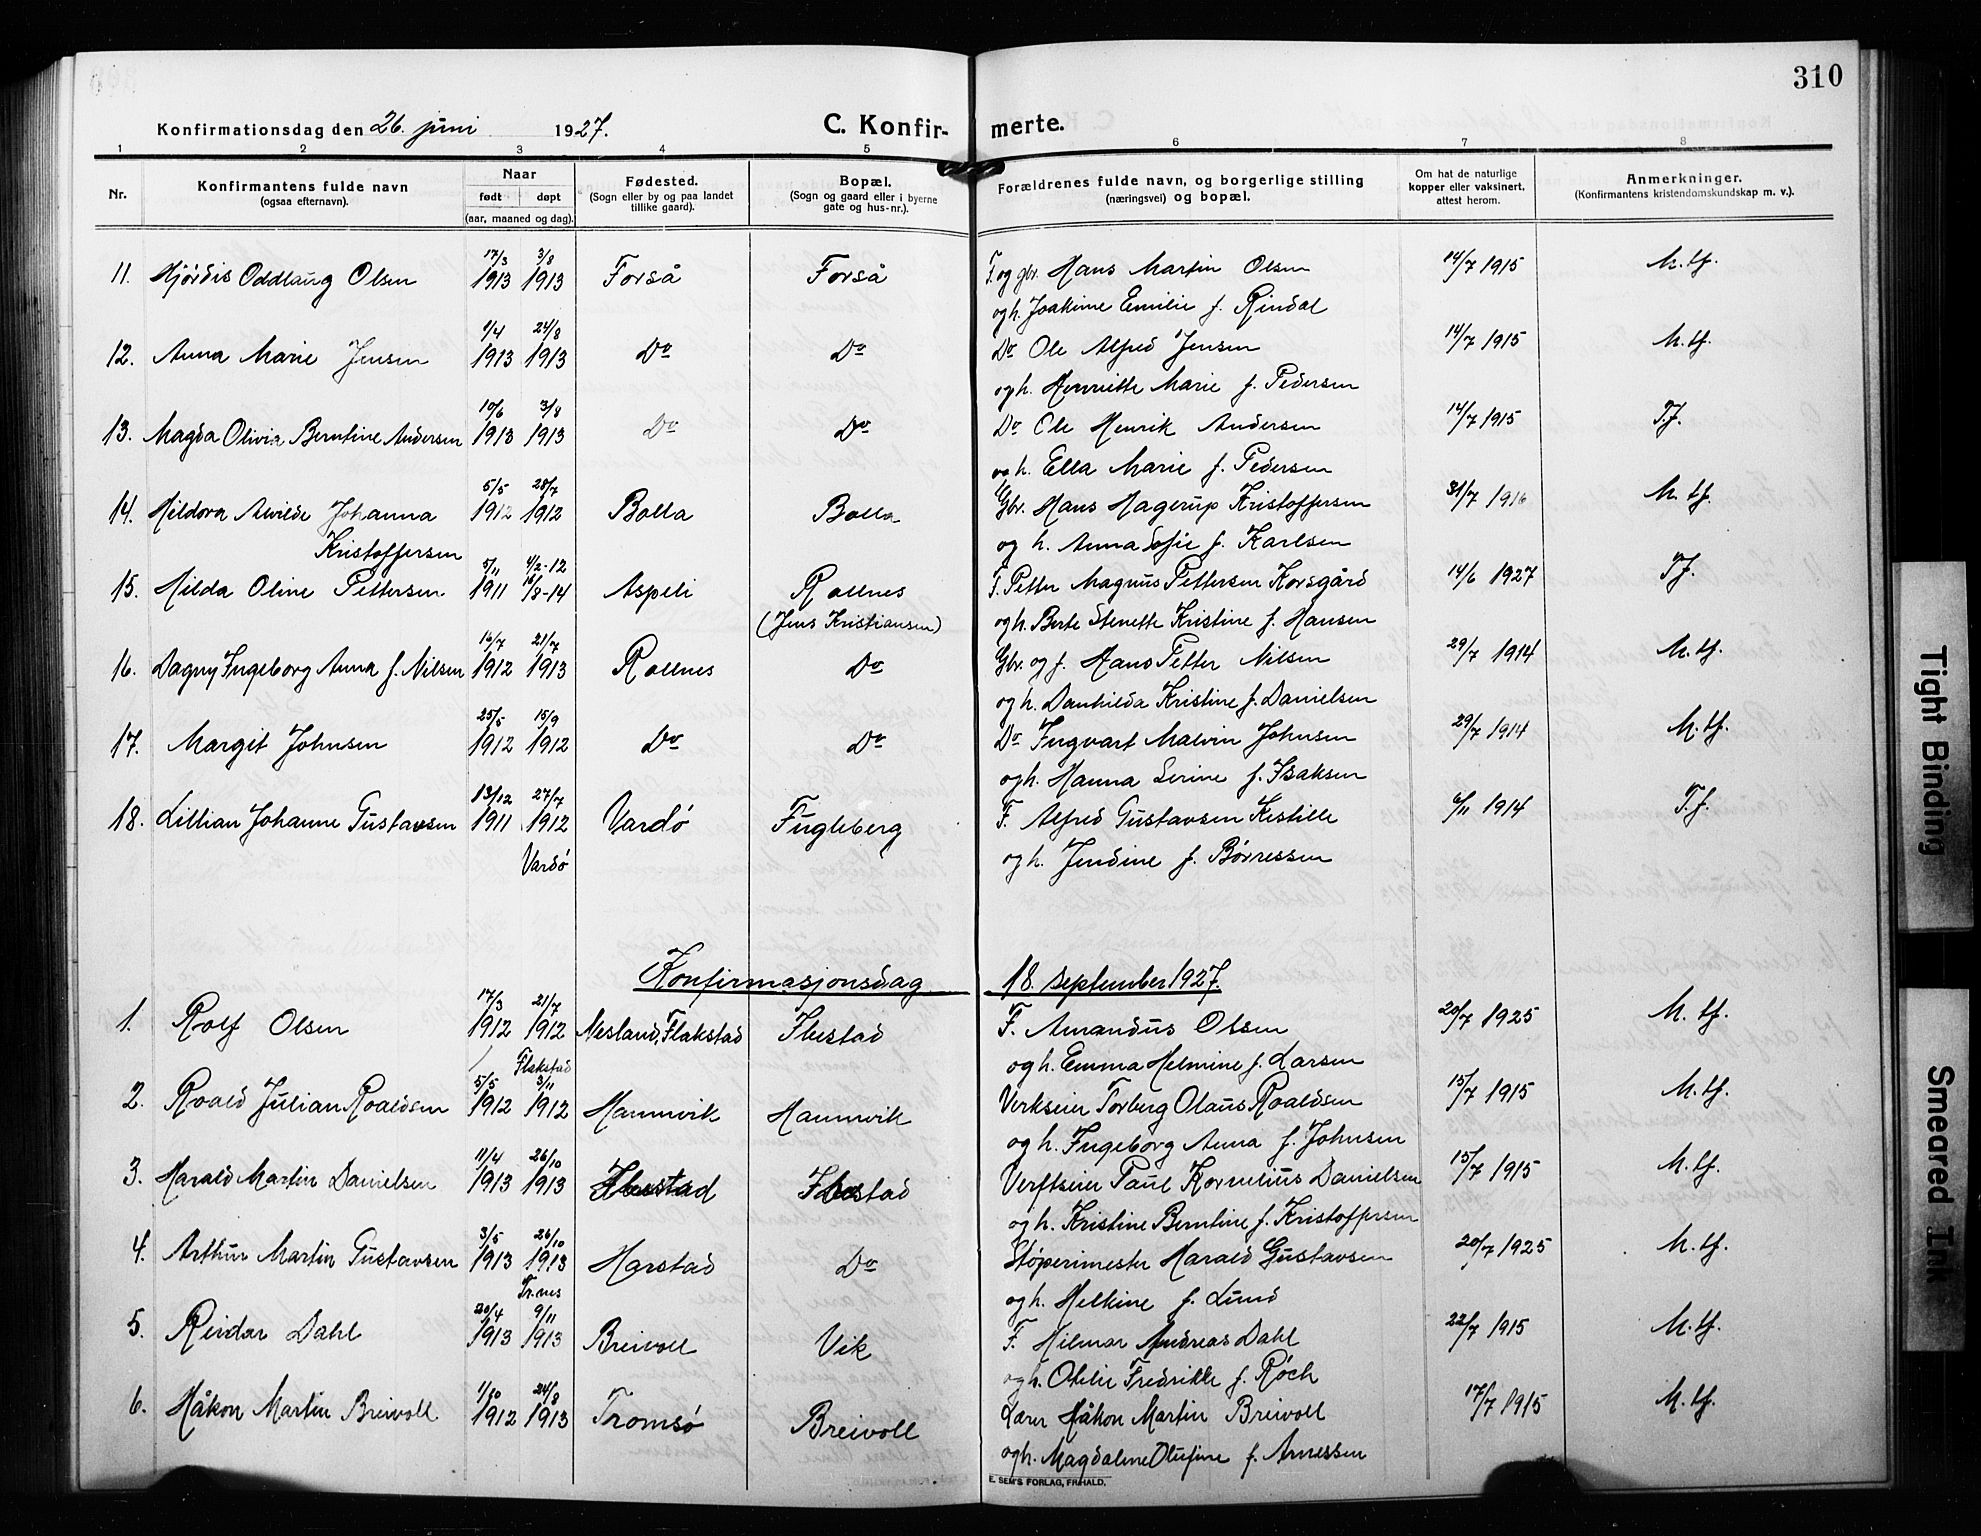 310
Konfirmationsdag den 26. juni 1927. C. Konfirmerte.
1 2 3 4 5 6 7 8
Nr. Konfirmantens fulde navn (ogsaa efternavn). Naar født døpt (aar, maaned og dag). Fødested. (Sogn eller by og paa landet tillike gaard). Bopæl. (Sogn og gaard eller i byerne gate og hus-nr.). Forældrenes fulde navn, og borgerlige stilling (næringsvei) og bopæl. Om hat de naturlige kopper eller vaksinert, attest herom. Anmerkninger. (Konfirmantens kristendomskundskap m. v.).
11. Hjördis Oddlaug Olsen 17/3 1913 3/8 1913 Forså Forså F. og gbr. Hans Martin Olsen 14/7 1915 M. tf.
og h. Joakime Emilie f. Rindal
12. Anna Marie Jensen 1/4 1913 24/8 1913 Do Do Do Ole Alfred Jensen 14/7 1915 M. tf.
og h. Henriette Marie f. Pedersen
13. Magda Olivia Berntine Andersen 10/6 1913 3/8 1913 Do Do Do Ole Henrik Andersen 14/7 1915 T.f.
og h. Ella Marie f. Pedersen
14. Hildora Alvilde Johanna 5/5 1912 28/7 1912 Bolla Bolla Gbr. Hans Hagerup Kristoffersen 31/7 1916 M. tf.
Kristoffersen og h. Anna Sofie f. Karlsen
15. Hilda Oline Pettersen 5/11 1911 4/2-12 16/8-14 Aspeli Rollnes F. Petter Magnus Pettersen Korsgård 14/6 1927 T.f.
(Jens Kristiansen) og h. Berte Stenette Kristine f. Hansen
16. Dagny Ingeborg Anna f. Nilsen 16/7 1912 21/7 1913 Rollnes Do Gbr. og f. Hans Petter Nilsen 29/7 1914 M. tf.
og h. Danhilda Kristine f. Danielsen
17. Margit Johnsen 25/5 1912 15/9 1912 Do Do Do Ingvart Malvin Johnsen 29/7 1914 M. tf.
og h. Hanna Serine f. Isaksen
18. Lillian Johanne Gustavsen 13/12 1911 27/7 1912 Vardø Fugleberg F. Alfred Gustavsen Kestille 6/11 1914 T.f.
Vardø og h. Jendine f. Børressen
Konfirmasjonsdag 18. september 1927.
1. Rolf Olsen 17/3 1912 21/7 1912 Nesland, Flakstad Ibestad F. Amandus Olsen 20/7 1925 M. tf.
Flakstad og h. Emma Helmine f. Larsen
2. Roald Julian Roaldsen 5/5 1912 3/11 1912 Hamnvik Hamnvik Verkseier Torberg Olaus Roaldsen 15/7 1915 M. tf.
og h. Ingeborg Anna f. Johnsen
3. Harald Martin Danielsen 11/4 1913 26/10 1913 Ibestad Ibestad Verftseier Paul Kornelius Danielsen 15/7 1915 M. tf.
og h. Kristine Berntine f. Kristoffersen
4. Arthur Martin Gustavsen 3/5 1913 26/10 1913 Harstad Do Støperimester Harald Gustavsen 20/7 1925 M. tf.
Tr.nes og h. Helkine f. Lund
5. Reidar Dahl 20/4 1913 9/11 1913 Breivoll Vik F. Hilmar Andreas Dahl 22/7 1915 M. tf.
og h. Otelie Fredrikke f. Røch
6. Håkon Martin Breivoll 1/10 1912 24/8 1913 Tromsø Breivoll Lærer Håkon Martin Breivoll 17/7 1915 M. tf.
og h. Magdalene Olufine f. Arnessen
E. SEM'S FORLAG, FR.HALD.
Tight Binding
Smeared Ink